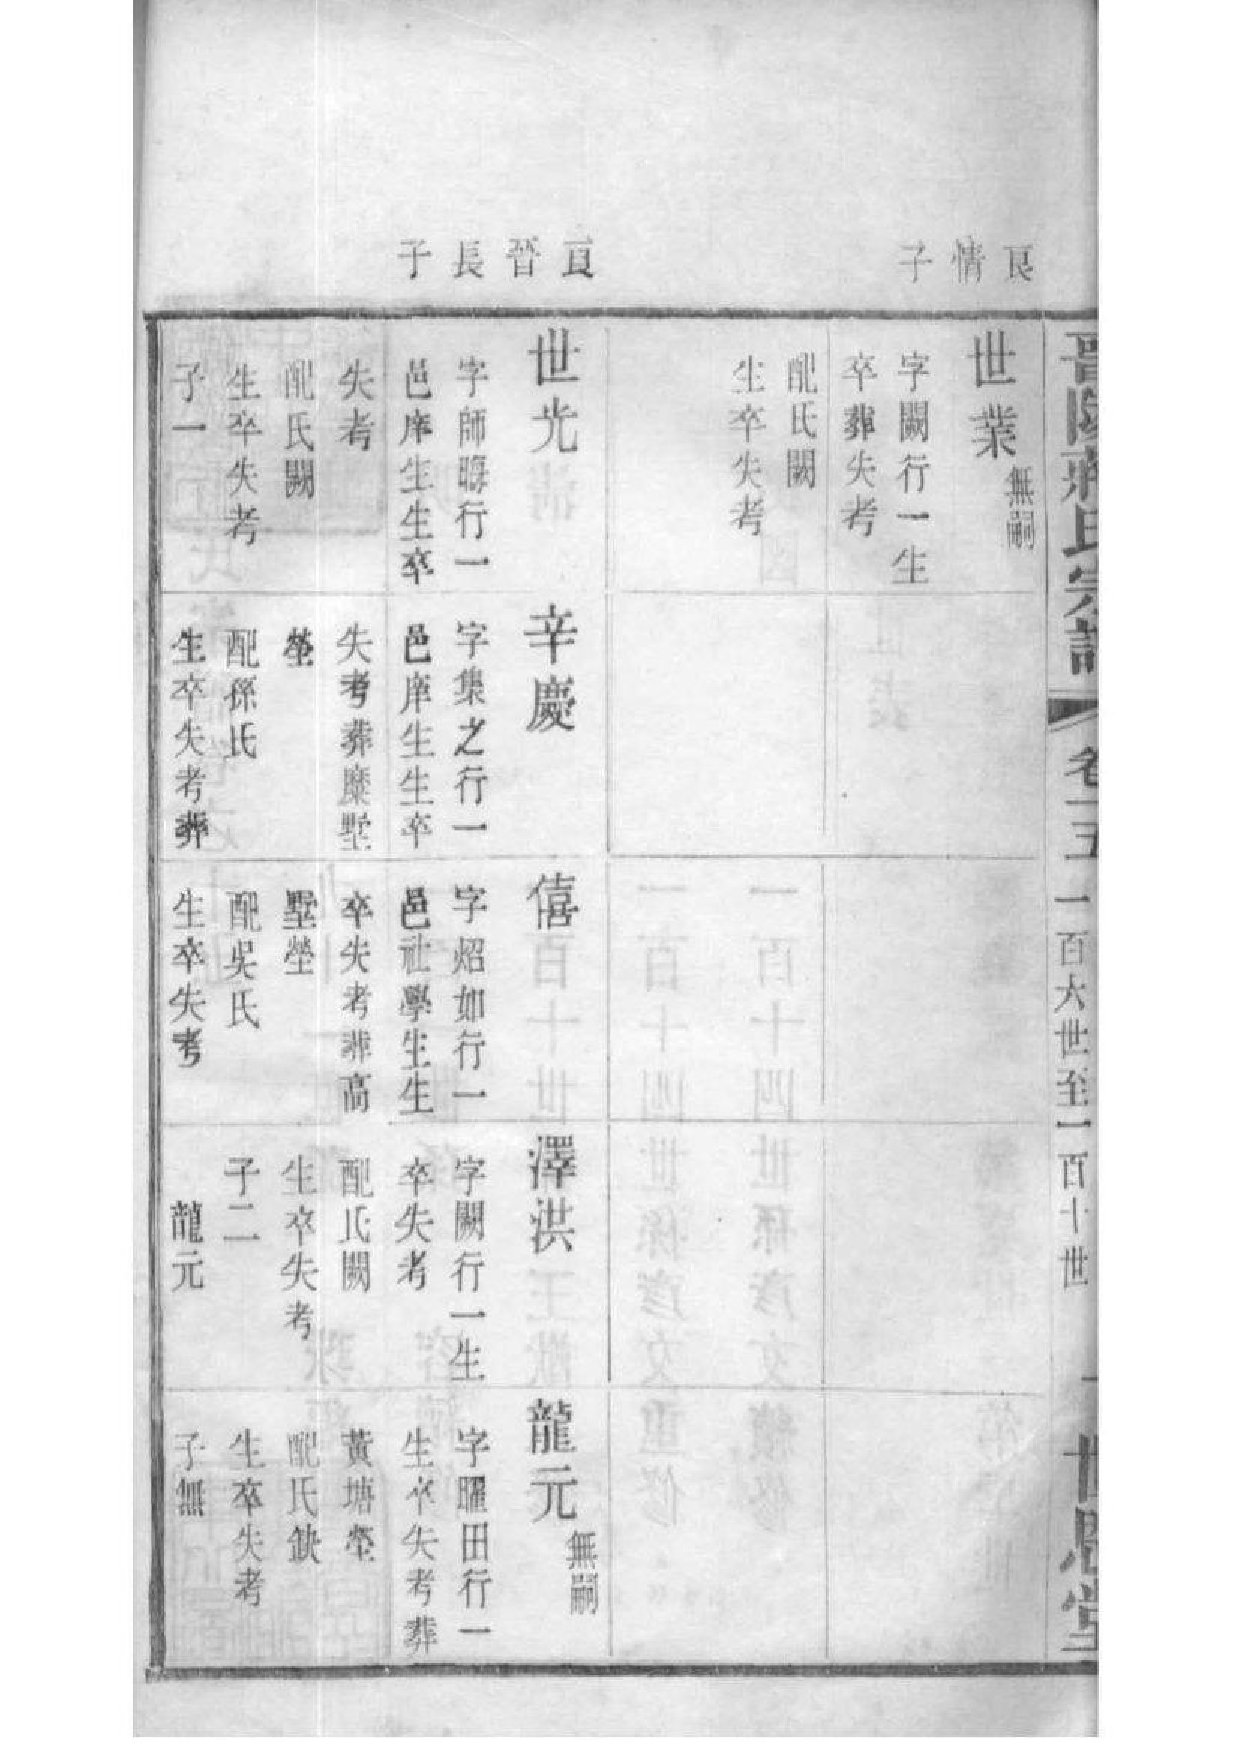 晉陵蔣氏宗譜
卷十五
一百六世至一百十世
世恩堂
良情子
世業
無嗣
字闕行一生
卒葬失考
配氏闕
生卒失考
良晉長子
世光
字師晦行一
邑庠生生卒
失考
配氏闕
生卒失考
子一
辛慶
字集之行一
邑庠生生卒
失考葬糜墅
塋
配孫氏
生卒失考葬
僖
字炤如行一
邑社學生生
卒失考葬高
墅塋
配吳氏
生卒失考
澤洪
字闕行一生
卒失考
配氏闕
生卒失考
子二
龍元
龍元
無嗣
字曜田行一
生卒失考葬
黃塘塋
配氏缺
生卒失考
子無